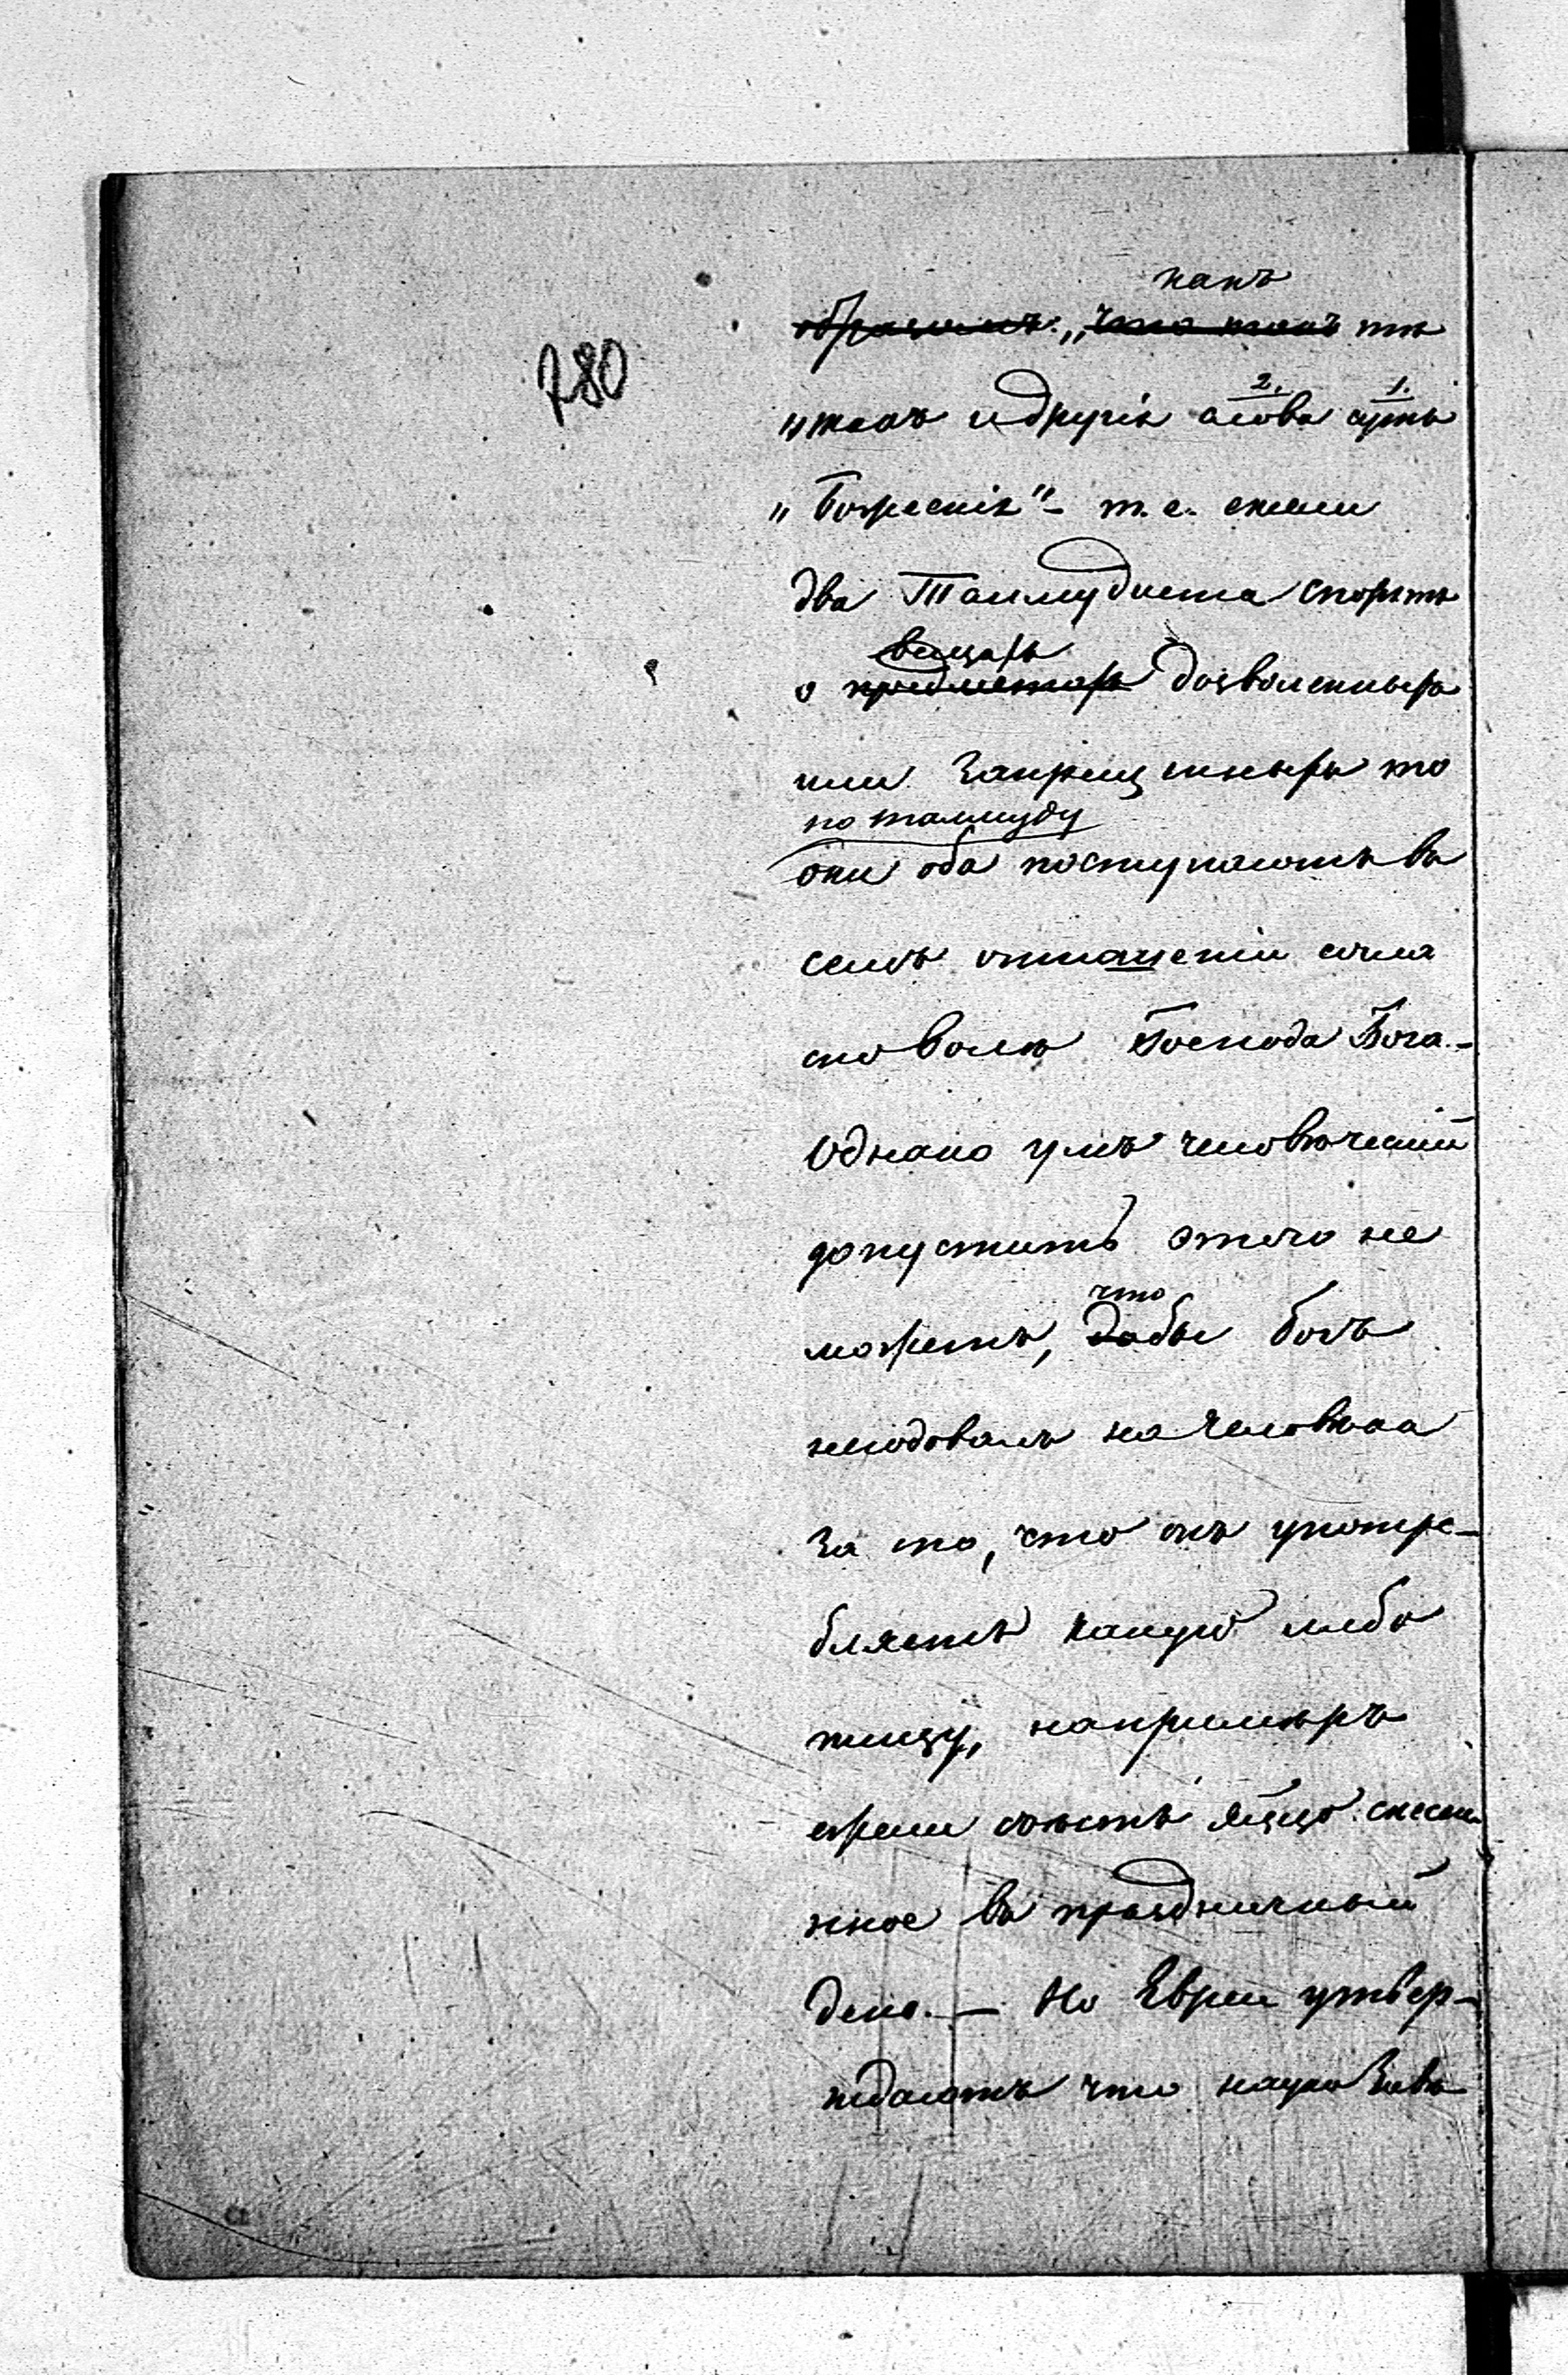 какъ
780
образомъ: „что какъ тѣ
„такъ и другія слова суть
2. 1.
„Божескія" – т. е. если
два Талмудиста спорятъ
вещахъ
о предметахъ дозволенныхъ
или запрещенныхъ то
по талмуду
они оба поступаютъ въ
семъ отношеніи согла
сно волѣ Господа Бога. –
Однако умъ человѣческій
допустить этого не
что
можетъ, дабы Богъ
негодовалъ на человѣка
за то, что онъ употре-
бляетъ какую либо
пищу, напримѣръ
ежели съѣстъ яйцо снесен
нное въ праздничный
день. — Но Евреи утвер-
ждаютъ что наука